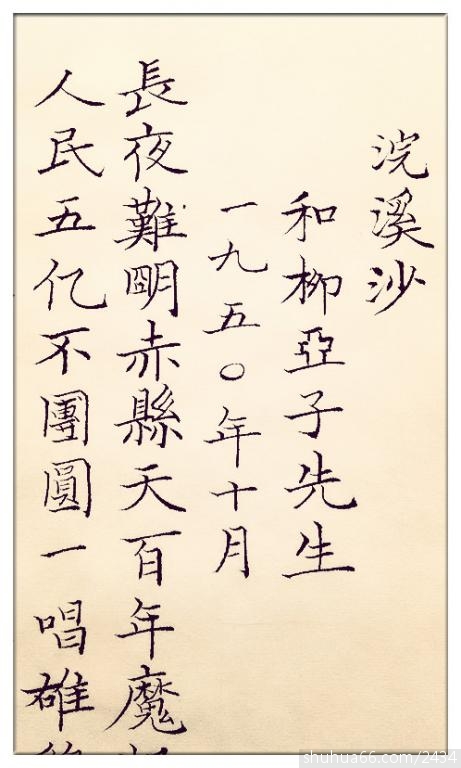 浣溪沙
和柳亞子先生
一九五〇年十月
長夜難朙赤縣天百年魔
人民五亿不團圓一唱雄
shuhua66.com/2434